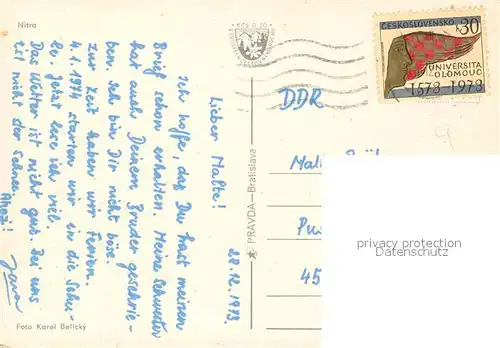 Nitra
ČESKOSLOVENSKO 30
UNIVERSITA
OLOMOUC
1573-1973
DDR
28.12.1973
Lieber Malte!
Ich hoffe, das Du hast meinen
Brief schon erhalten. Meine Schwester
hat auch Deinem Bruder geschrie-
ben. Ich bin Dir nicht böse.
Zur Zeit haben wir Ferien.
4.1.1974 starten wir in die Schu-
le. Jetzt lese ich viel.
Das Wetter ist nicht gut. Bei uns
ist nicht der Schnee.
Ahoj!
Jana
PRAVDA—Bratislava
45
privacy protection
Datenschutz
Foto Karol Belický